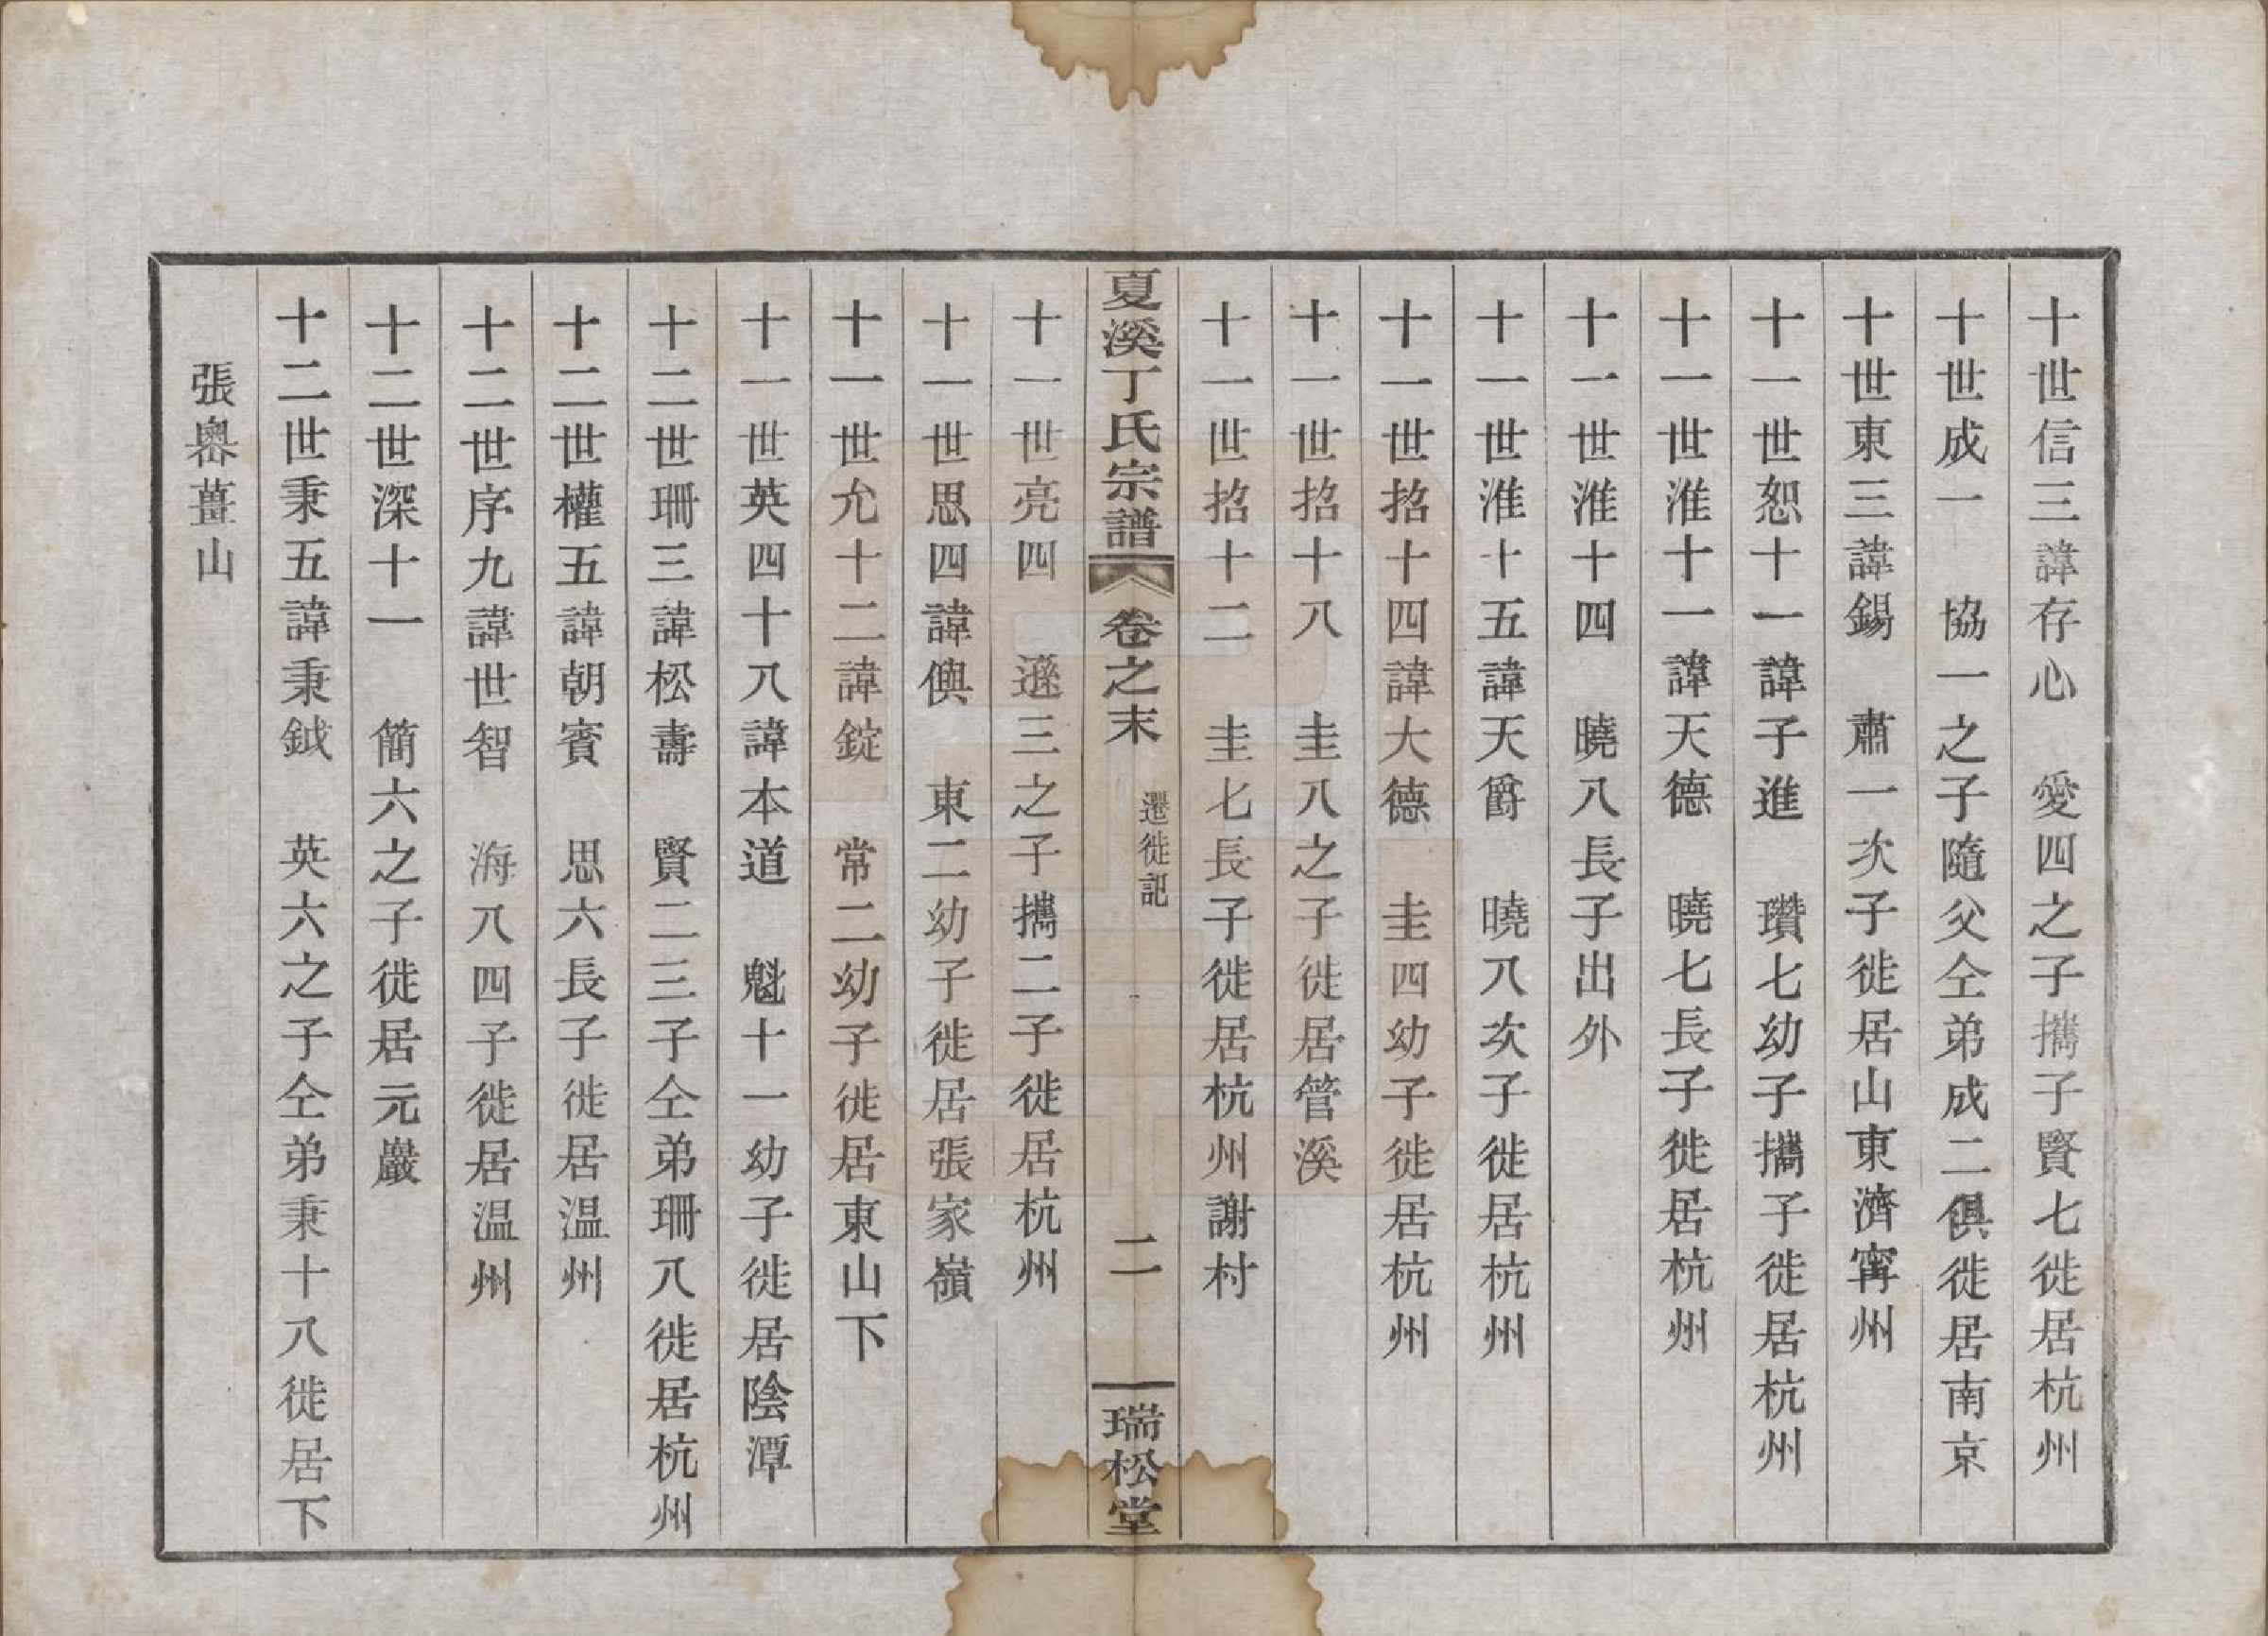 十世信三諱存心　愛四之子攜子賢七徙居杭州
十世成一　協一之子隨父仝弟成二俱徙居南京
十世東三諱錫　肅一次子徙居山東濟甯州
十一世恕十一諱子進　瓚七幼子攜子徙居杭州
十一世淮十一諱天德　曉七長子徙居杭州
十一世淮十四　曉八長子出外
十一世淮十五諱天爵　曉八次子徙居杭州
十一世招十四諱大德　圭四幼子徙居杭州
十一世招十八　圭八之子徙居管溪
十一世招十二　圭七長子徙居杭州謝村
夏溪丁氏宗譜　卷之末　遷徙記　二　瑞松堂
十一世亮四　遜三之子攜二子徙居杭州
十一世思四諱傊　東二幼子徙居張家嶺
十一世允十二諱錠　常二幼子徙居東山下
十一世英四十八諱本道　魁十一幼子徙居陰潭
十二世珊三諱松壽　賢二三子仝弟珊八徙居杭州
十二世權五諱朝賓　思六長子徙居温州
十二世序九諱世智　海八四子徙居温州
十二世深十一　簡六之子徙居元巖
十二世秉五諱秉鉞　英六之子仝弟秉十八徙居下
張嶴薑山